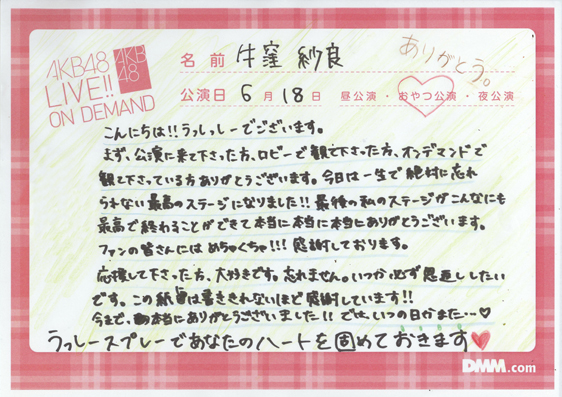 AKB48
LIVE!!
ON DEMAND
AKB
48
名前 牛窪 紗良
ありがとう。
公演日 6月18日 昼公演・おやつ公演・夜公演
こんにちは!! うっしっしーでございます。
まず、公演に来て下さった方、ロビーで観て下さった方、オンデマンドで
観て下さっている方ありがとうございます。今日は一生で絶対に忘れ
られない最高のステージになりました!! 最後の私のステージがこんなにも
最高で終わることができて本当に本当に本当にありがとうございます。
ファンの皆さんにはめちゃくちゃ!!! 感謝しております。
応援して下さった方、大好きです。忘れません。いつか必ず恩返ししたい
です。この紙には書ききれないほど感謝しています!!
今まで、本当にありがとうございました!! では、いつの日かまた…♥
うっしースプレーであなたのハートを固めておきます♥
DMM.com